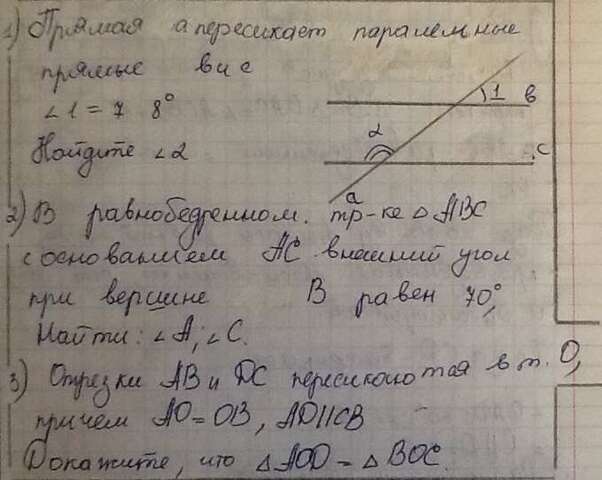 1) Прямая а пересикает паралельные
прямые в и с
∠1 = 7 8°
Найдите ∠2
1 в
2
с
а
2) В равнобедренном. тр-ке △ABC
с основанием AC внешний угол
при вершине B равен 70°,
Найти: ∠A; ∠C.
3) Отрезки AB и DC пересикаются в т. O,
причем AO = OB, AD||CB
Докажите, что △AOD = △BOC.